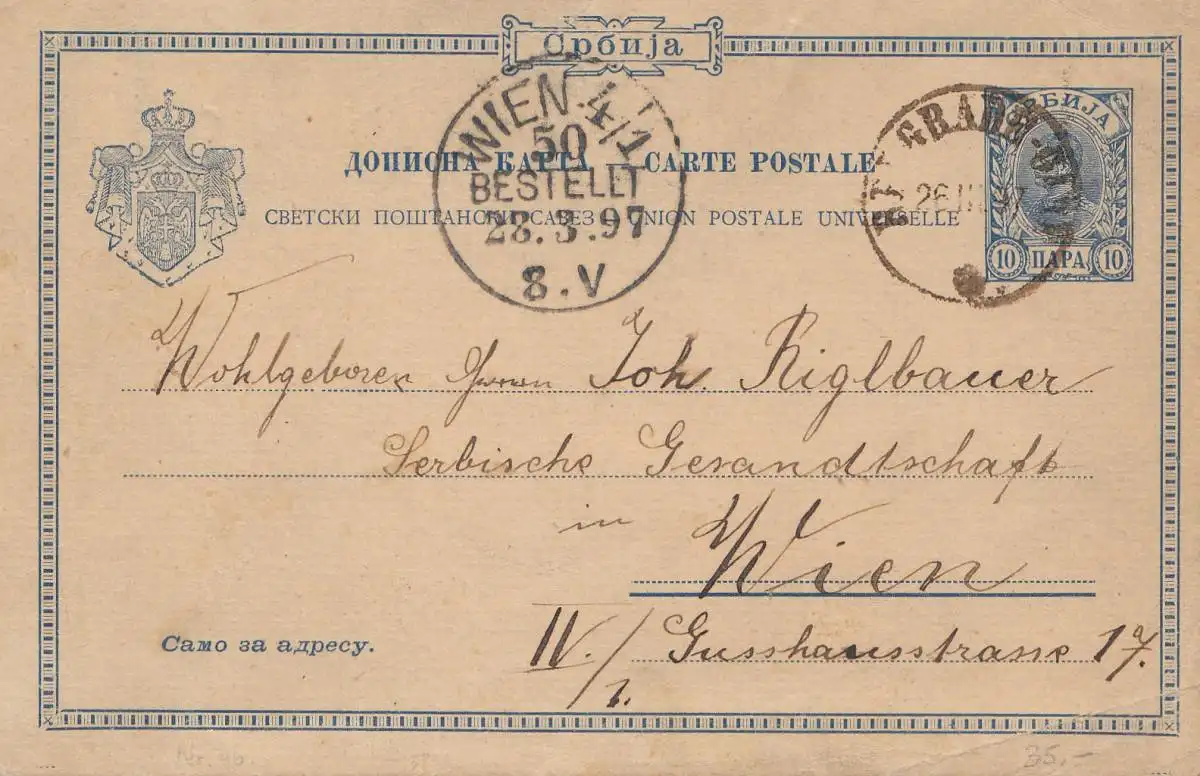 Србија
ДОПИСНА КАРТА — CARTE POSTALE
СВЕТСКИ ПОШТАНСКИ САВЕЗ — UNION POSTALE UNIVERSELLE
WIEN 4/1
50
BESTELLT
28.3.97
8.V
26 III
СРБИЈА
10 ПАРА 10
Wohlgeboren Herrn Joh. Riglbauer
Serbische Gesandtschaft
in
Wien
IV./1. Gusshausstrasse 17.
Само за адресу.
35.-